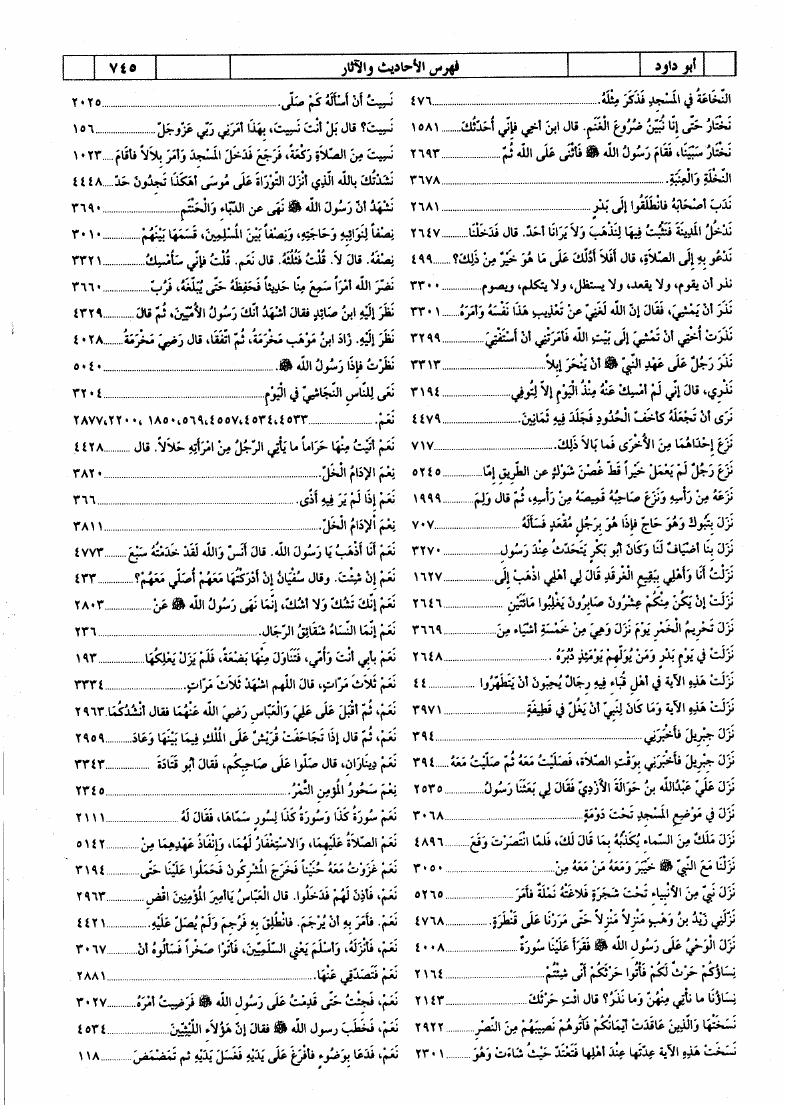 أبو داود
فهرس الأحاديث والآثار
٧٤٥
النّخَاعَةُ في المَسْجِدِ فَذَكَرَ مِثْلَهُ. ٤٧٦
نَخْتَارُ حَتّى إنّا نُبَيِّنُ ضُرُوعَ الْغَنَمِ. قال ابن أخِي فإنّي أُحَدّثُكَ ١٥٨١
نَخْتَارُ سَبْيَنَا، فَقَامَ رَسُولُ الله ﷺ فأثْنَى عَلَى الله ثُمّ ٢٦٩٣
النّخْلَةِ وَالْعِنَبَةِ. ٣٦٧٨
نَدَبَ أصْحَابَهُ فانْطَلَقُوا إلَى بَدْرٍ ٢٦٨١
نَدْخُلُ المَدِينَةَ فَنَثْبُتُ فِيهَا لِنَذْهَبَ وَلاَ يَرَانَا أحَدٌ. قال فَدَخَلْنَا ٢٦٤٧
نَدْعُو بِهِ إلَى الصّلاَةِ، قال أفَلاَ أدُلّكَ عَلَى مَا هُوَ خَيْرٌ مِنْ ذَلِكَ؟ ٤٩٩
نذر أن يقوم، ولا يقعد، ولا يستظل، ولا يتكلم، ويصوم ٣٣٠٠
نَذَرَ أنْ يَمْشِيَ، فَقَالَ إنّ الله لَغَنِيّ عَنْ تَعْذِيبِ هَذَا نَفْسَهُ وَأمَرَهُ ٣٣٠١
نَذَرَتْ أُخْتِي أنْ تَمْشِيَ إلَى بَيْتِ الله فَأمَرَتْنِي أنْ أسْتَفْتِيَ ٣٢٩٩
نَذَرَ رَجُلٌ عَلَى عَهْدِ النّبيّ ﷺ أنْ يَنْحَرَ إبِلاً ٣٣١٣
نَذْرِي، قال إنّي لَمْ أُمْسِكْ عَنْهُ مُنْذُ الْيَوْمِ إلاّ لِتُوفِيَ ٣١٩٤
نَرَى أنْ تَجْعَلَهُ كأخَفّ الْحُدُودِ فَجَلَدَ فِيهِ ثَمَانِينَ. ٤٤٧٩
نَزَعَ إحْدَاهُمَا مِنَ الأُخْرَى فَمَا بَالاَ ذَلِكَ. ٧١٧
نَزَعَ رَجُلٌ لَمْ يَعْمَلْ خَيْراً قَطّ غُصْنَ شَوْكٍ عن الطّرِيقِ إمّا ٥٢٤٥
نَزَعَهُ مِنْ رَأْسِهِ وَنَزَعَ صَاحِبُهُ قَمِيصَهُ مِنْ رَأْسِهِ، ثُمّ قال وَلِمَ ١٩٩٩
نَزَلَ بِتَبُوكَ وَهُوَ حَاجّ فإذَا هُوَ بِرَجُلٍ مُقْعَدٍ فَسَألَهُ ٧٠٧
نَزَلَ بِنَا أضْيَافٌ لَنَا وَكَانَ أبُو بَكْرٍ يَتَحَدّثُ عِنْدَ رَسُولِ ٣٢٧٠
نَزَلْتُ أنَا وَأهْلِي بِبَقِيعِ الْغَرْقَدِ قَالَ لِي أهْلِي اذْهَبْ إلَى ١٦٢٧
نَزَلَتْ إنْ يَكُنْ مِنْكُمْ عِشْرُونَ صَابِرُونَ يَغْلِبُوا مَائَتَيْنِ ٢٦٤٦
نَزَلَ تَحْرِيمُ الْخَمْرِ يَوْمَ نَزَلَ وَهِيَ مِنْ خَمْسَةِ أشْيَاءَ مِنَ ٣٦٦٩
نَزَلَتْ في يَوْمِ بَدْرٍ وَمَنْ يُوَلّهِمْ يَوْمَئِذٍ دُبُرَهُ . ٢٦٤٨
نَزَلَتْ هَذِهِ الآية في أهْلِ قُبَاءَ فِيهِ رِجَالٌ يُحِبّونَ أنْ يَتَطَهّرُوا ٤٤
نَزَلَتْ هَذِهِ الآية وَمَا كَانَ لِنَبِيّ أنْ يَغُلّ في قَطِيفَةٍ ٣٩٧١
نَزَلَ جِبْرِيلُ فأخْبَرَنِي ٣٩٤
نَزَلَ جِبْرِيلُ فأخْبَرَنِي بِوَقْتِ الصّلاَةِ، فَصَلّيْتُ مَعَهُ ثُمّ صَلّيْتُ مَعَهُ ٣٩٤
نَزَلَ عَلَيّ عَبْدُالله بنُ حَوَالَةَ الأزْدِيّ فَقَالَ لِي بَعَثَنَا رَسُولُ ٢٥٣٥
نَزَلَ في مَوْضِعِ المَسْجِدِ تَحْتَ دَوْمَةٍ ٣٠٦٨
نَزَلَ مَلَكٌ مِنَ السّماءِ يُكَذّبُهُ بِمَا قَالَ لَكَ، فَلمّا انْتَصَرْتَ وَقَعَ ٤٨٩٦
نَزَلْنَا مَعَ النّبيّ ﷺ خَيْبَرَ وَمَعَهُ مَنْ مَعَهُ مِنْ ٣٠٥٠
نَزَلَ نَبِيّ مِنَ الأنْبِيَاءِ تَحْتَ شَجَرَةٍ فَلاَغَتْهُ نَمْلَةٌ فأمَرَ ٥٢٦٥
نَزّلَنِي زَيْدُ بنُ وَهْبٍ مَنْزِلاً مَنْزِلاً حَتّى مَرَرْنَا عَلَى قَنْطَرَةٍ. ٤٧٦٨
نَزَلَ الْوَحْيُ عَلَى رَسُولِ الله ﷺ فَقَرَأ عَلَيْنَا سُورَةَ ٤٠٠٨
نِسَاؤُكُمْ حَرْثٌ لَكُمْ فَأْتُوا حَرْثَكُمْ أنّى شِئْتُمْ ٢١٦٤
نِسَاؤُنَا مَا نأتِي مِنْهُنّ وَمَا نَذَرُ؟ قالَ ائْتِ حَرْثَكَ ٢١٤٣
نَسَخَتْهَا وَالّذِينَ عَاقَدَتْ أيْمَانُكُمْ فَآتُوهُمْ نَصِيبَهُمْ مِنَ النّصْرِ ٢٩٢٢
نَسَخَتْ هَذِهِ الآية عِدّتَهَا عِنْدَ أهْلِهَا فَتَعْتَدّ حَيْثُ شَاءَتْ وَهُوَ ٢٣٠١
نَسِيتُ أنْ أسْألَهُ كَمْ صَلّى. ٢٠٢٥
نَسِيتَ؟ قال بَلْ أنْتَ نَسِيتَ، بِهَذَا أمَرَنِي رَبّي عَزّوجَلّ ١٥٦
نَسِيتَ مِنَ الصّلاَةِ رَكْعَةً، فَرَجَعَ فَدَخَلَ المَسْجِدَ وَأمَرَ بِلاَلاً فأقَامَ ١٠٢٣
نَشَدْتُكَ بالله الّذِي أنْزَلَ التّوْرَاةَ عَلَى مُوسَى أهَكَذَا تَجِدُونَ حَدّ ٤٤٤٨
نَشْهَدُ أنّ رَسُولَ الله ﷺ نَهَى عن الدّبّاءِ وَالْحَنْتَمِ ٣٦٩٠
نِصْفاً لِنَوَائِبِهِ وَحَاجَتِهِ، وَنِصْفاً بَيْنَ المُسْلِمِينَ، قَسَمَهَا بَيْنَهُمْ ٣٠١٠
نِصْفُهُ. قالَ لاَ. قُلْتُ فَثُلُثُهُ. قالَ نَعَمْ. قُلْتُ فإنّي سَأُمْسِكُ ٣٣٢١
نَضّرَ الله أمْرَأً سَمِعَ مِنّا حَدِيثاً فَحَفِظَهُ حَتّى يُبَلّغَهُ، فَرُبّ ٣٦٦٠
نَظَرَ إلَيْهِ ابنُ صَائِدٍ فقالَ أشْهَدُ أنّكَ رَسُولُ الأُمّيّينَ، ثُمّ قالَ ٤٣٢٩
نَظَرَ إلَيْهِ. زَادَ ابنُ مَوْهَبٍ مَخْرَمَةُ، ثُمّ اتّفَقَا، قال رَضِيَ مَخْرَمَةُ ٤٠٢٨
نَظَرْتُ فإذَا رَسُولُ الله ﷺ. ٥٠٤٠
نَعَى لِلنّاسِ النّجَاشِيّ في الْيَوْمِ ٣٢٠٤
نَعَمْ. ٢٨٧٧،٢٢٠٠، ١٨٥٠،٥٦٩،٤٥٥٧،٤٥٣٤،٤٥٣٣
نَعَمْ أتَيْتُ مِنْهَا حَرَاماً ما يأْتِي الرّجُلُ مِنْ امْرَأتِهِ حَلاَلاً. قال ٤٤٢٨
نِعْمَ الإدَامُ الْخَلّ. ٣٨٢٠
نَعَمْ إذَا لَمْ يَرَ فِيهِ أذًى. ٣٦٦
نِعْمَ الإدَامُ الْخَلّ. ٣٨١١
نَعَمْ أنَا أذْهَبُ يَا رَسُولَ الله. قالَ أنَسٌ وَالله لَقَدْ خَدَمْتُهُ سَبْعَ ٤٧٧٣
نَعَمْ إنْ شِئْتَ. وقال سُفْيَانُ إنْ أدْرَكْتُهَا مَعَهُمْ أُصَلّي مَعَهُمْ؟ ٤٣٣
نَعَمْ إنّكَ تَشُكّ وَلاَ أشُكّ، إنّمَا نَهَى رَسُولُ الله ﷺ عَنْ ٢٨٠٣
نَعَمْ إنّمَا النّسَاءُ شَقَائِقُ الرّجَالِ. ٢٣٦
نَعَمْ بأبِي أنْتَ وَأُمّي، فَتَنَاوَلَ مِنْهَا بَضْعَةً، فَلَمْ يَزَلْ يَعْلِكُهَا ١٩٣
نَعَمْ ثَلاَثَ مَرّاتٍ، قالَ اللهم اشْهَدْ ثَلاَثَ مَرّاتٍ. ٣٣٣٤
نَعَمْ، ثُمّ أقْبَلَ عَلَى عَلِيّ وَالْعَبّاسِ رَضِيَ الله عَنْهُمَا فقال أنْشُدُكُمَا. ٢٩٦٣
نَعَمْ، ثُمّ قال إذَا تَجَاحَفَتْ قُرَيْشٌ عَلَى المُلْكِ فِيمَا بَيْنَهَا وَعَادَ ٢٩٥٩
نَعَمْ دِينَارَانِ، قال صَلّوا عَلَى صَاحِبِكُم، فَقَالَ أبُو قَتَادَةَ ٣٣٤٣
نِعْمَ سَحُورُ المُؤْمِنِ التّمْرُ. ٢٣٤٥
نَعَمْ سُورَةُ كَذَا وَسُورَةُ كَذَا لِسُورٍ سَمّاهَا، فَقَالَ لَهُ ٢١١١
نَعَمْ الصّلاَةُ عَلَيْهِمَا، وَالاسْتِغْفَارُ لَهُمَا، وَإنْفَاذُ عَهْدِهِمَا مِنْ ٥١٤٢
نَعَمْ غَزَوْتُ مَعَهُ حُنَيْناً فَخَرَجَ المُشْرِكُونَ فَحَمَلُوا عَلَيْنَا حَتّى ٣١٩٤
نَعَمْ، فَأذِنَ لَهُمْ فَدَخَلُوا. قال الْعَبّاسُ يَاأمِيرَ المُؤْمِنِينَ اقْضِ ٢٩٦٣
نَعَمْ. فأمَرَ بِهِ أنْ يُرْجَمَ. فانْطُلِقَ بِهِ فَرُجِمَ وَلَمْ يُصَلّ عَلَيْهِ. ٤٤٢١
نَعَمْ، فأنْزَلَهُ، وَأسْلَمَ يَعْنِي السّلَمِيّينَ، فأتَوْا صَخْراً فَسَألُوهُ أنْ ٣٠٦٧
نَعَمْ فَتَصَدّقِي عَنْهَا. ٢٨٨١
نَعَمْ، فَجِئْتُ حَتّى قَدِمْتُ عَلَى رَسُولِ الله ﷺ فَرَضِيتُ أمْرَهُ ٣٠٢٧
نَعَمْ، فَخَطَبَ رسول الله ﷺ فقالَ إنّ هَؤُلاَءِ اللّيْثِيّينَ ٤٥٣٤
نَعَمْ، فَدَعَا بِوَضُوءٍ فأفْرَغَ عَلَى يَدَيْهِ فَغَسَلَ يَدَيْهِ ثم تَمَضْمَضَ ١١٨